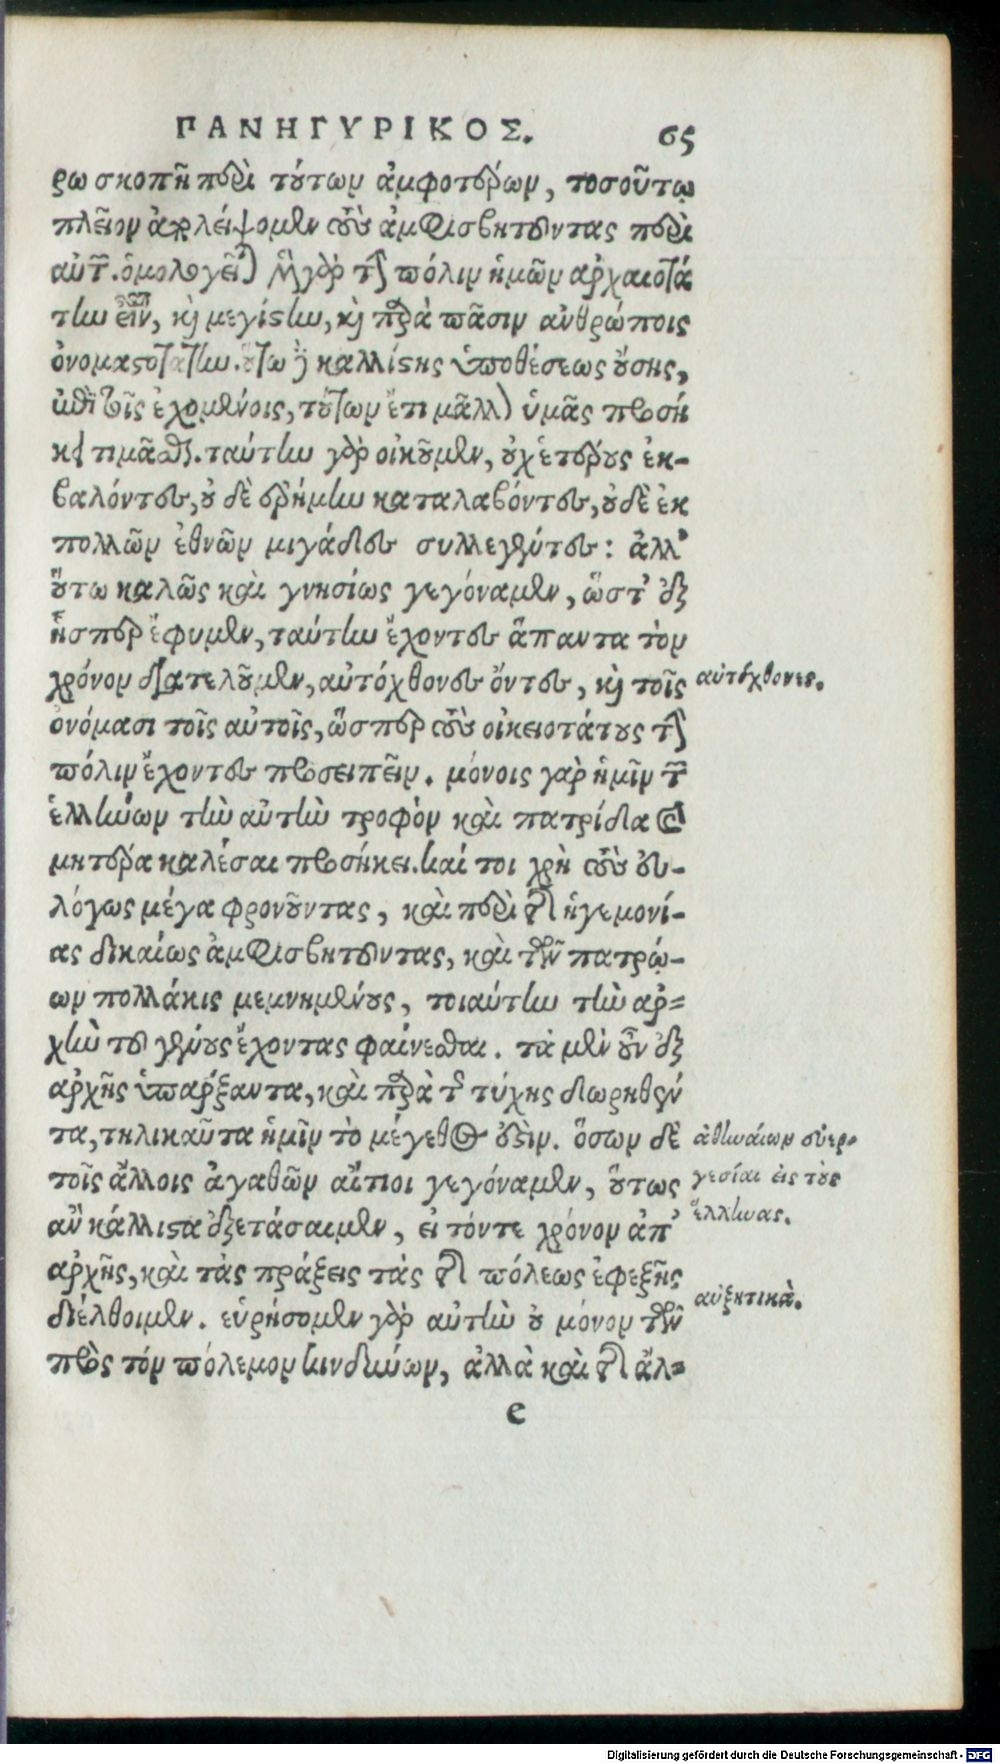 ΠΑΝΗΓΥΡΙΚΟΣ. 65
ρω σκοπῇ περὶ τούτων ἀμφοτέρων, τοσοῦτῳ
πλεῖον ἀπολείψομεν τοὺς ἀμφισβητοῦντας περὶ
αὐτῶν. ὁμολογεῖται μὲν γὰρ τὴν πόλιν ἡμῶν ἀρχαιοτά
την εἶναι, καὶ μεγίστην, καὶ παρὰ πᾶσιν ἀνθρώποις
ὀνομαστοτάτην. οὕτω δὲ καλλίστης ὑποθέσεως οὔσης,
ἐπὶ τοῖς ἐχομένοις, τούτων ἔτι μᾶλλον ὑμᾶς προσή
κει τιμᾶσθαι. ταύτην γὰρ οἰκοῦμεν, οὐχ ἑτέρους ἐκ-
βαλόντες, οὐδὲ ἐρήμην καταλαβόντες, οὐδὲ ἐκ
πολλῶν ἐθνῶν μιγάδες συλλεγέντες: ἀλλ'
οὕτω καλῶς καὶ γνησίως γεγόναμεν, ὥστ' ἐξ
ἧσπερ ἔφυμεν, ταύτην ἔχοντες ἅπαντα τὸν
χρόνον διατελοῦμεν, αὐτόχθονες ὄντες, καὶ τοῖς
αὐτόχθονες.
ὀνόμασι τοῖς αὐτοῖς, ὥσπερ τοὺς οἰκειοτάτους τὴν
πόλιν ἔχοντες προσειπεῖν. μόνοις γὰρ ἡμῖν τῶν
ἑλλήνων τὴν αὐτὴν τροφὸν καὶ πατρίδα καὶ
μητέρα καλέσαι προσήκει. καί τοι χρὴ τοὺς εὐ-
λόγως μέγα φρονοῦντας, καὶ περὶ τῆς ἡγεμονί-
ας δικαίως ἀμφισβητοῦντας, καὶ τῶν πατρῴ-
ων πολλάκις μεμνημένους, τοιαύτην τὴν ἀρ-
χὴν τοῦ γένους ἔχοντας φαίνεσθαι. τὰ μὲν οὖν ἐξ
ἀρχῆς ὑπάρξαντα, καὶ παρὰ τῆς τύχης δωρηθέν
τα, τηλικαῦτα ἡμῖν τὸ μέγεθος ἐστιν. ὅσων δὲ
ἀθηναίων εὐερ-
τοῖς ἄλλοις ἀγαθῶν αἴτιοι γεγόναμεν, οὕτως
γεσίαι εἰς τοὺς
ἂν κάλλιστα ἐξετάσαιμεν, εἰ τόντε χρόνον ἀπ'
ἕλληνας.
ἀρχῆς, καὶ τὰς πράξεις τὰς τῆς πόλεως ἐφεξῆς
αὐξητικά.
διέλθοιμεν. εὑρήσομεν γὰρ αὐτὴν οὐ μόνον τῶν
πρὸς τόν πόλεμον κινδύνων, ἀλλὰ καὶ τῆς ἄλ-
e
Digitalisierung gefördert durch die Deutsche Forschungsgemeinschaft - DFG